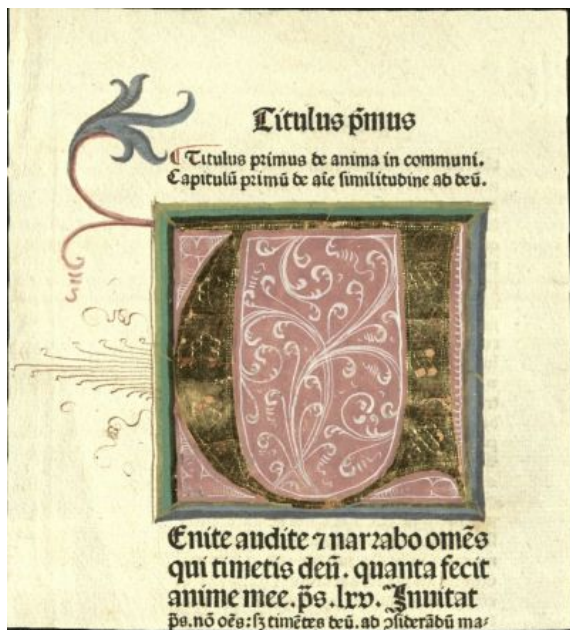 Titulus p̄mus
Titulus primus de anima in communi.
Capitulū primū de aīe similitudine ad deū.
V
Enite audite ⁊ narrabo omēs
qui timetis deū. quanta fecit
anime mee. p̄s. lxv. Inuitat
p̄s. nō oēs: sꝫ timētes deū. ad ꝯsiderādū ma⸗